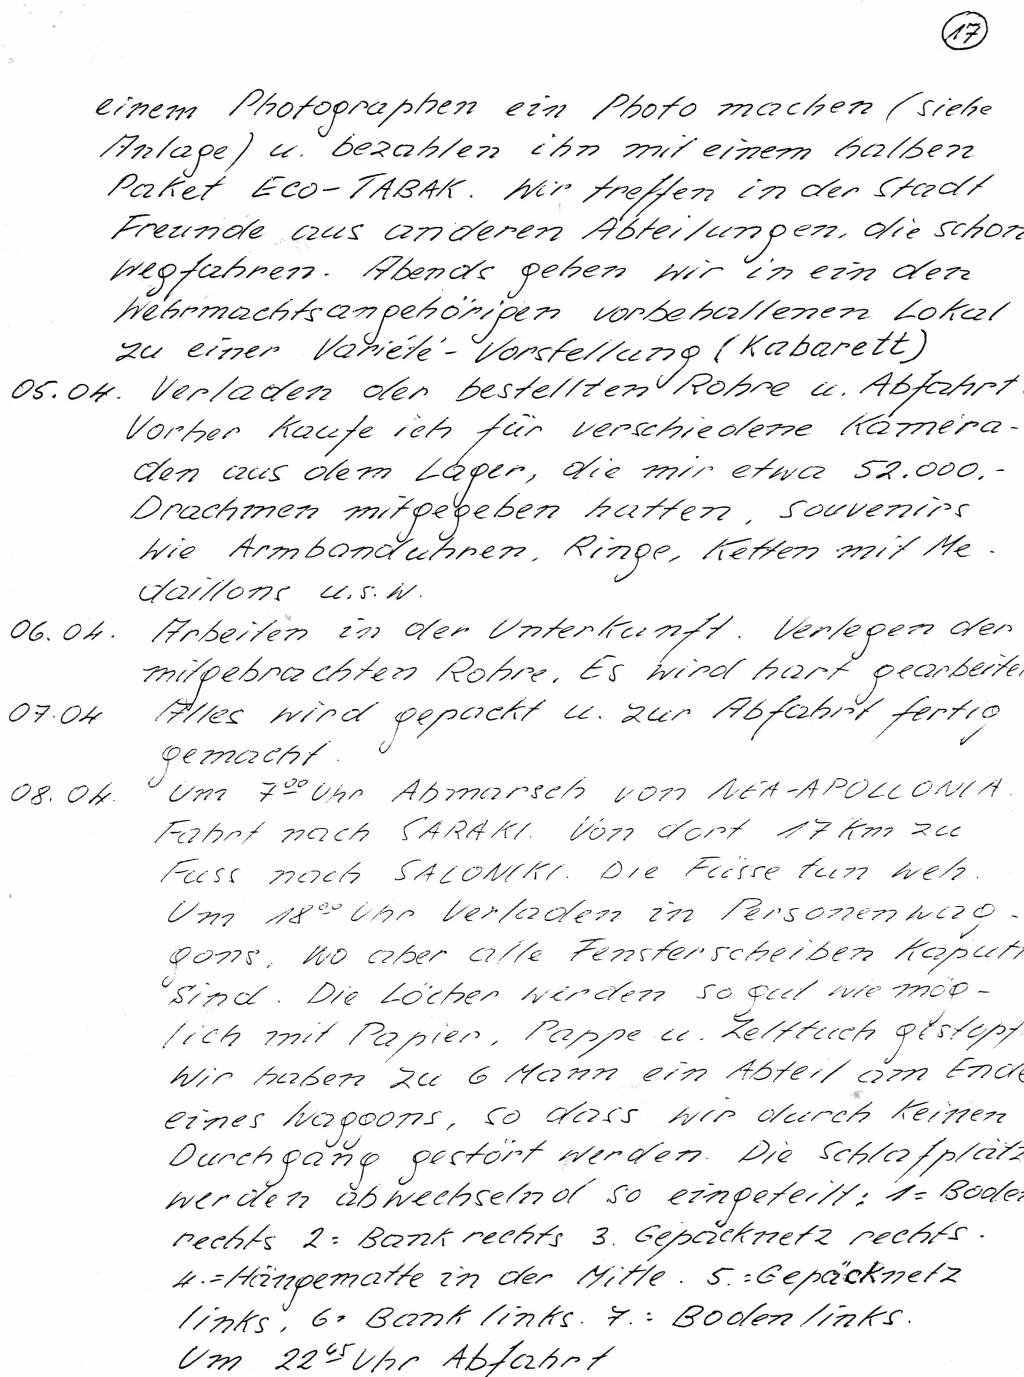 17
einem Photographen ein Photo machen (siehe
Anlage) u. bezahlen ihn mit einem halben
Paket ECO-TABAK. Wir treffen in der Stadt
Freunde aus anderen Abteilungen, die schon
wegfahren. Abends gehen wir in ein den
Wehrmachtsangehörigen vorbehaltenen Lokal
zu einer Variété-Vorstellung (Kabarett)
05.04. Verladen der bestellten Rohre u. Abfahrt.
Vorher kaufe ich für verschiedene Kamera-
den aus dem Lager, die mir etwa 52.000.-
Drachmen mitgegeben hatten, Souvenirs
wie Armbanduhren, Ringe, Ketten mit Me-
daillons u.s.w.
06.04. Arbeiten in der Unterkunft. Verlegen der
mitgebrachten Rohre. Es wird hart gearbeitet
07.04 Alles wird gepackt u. zur Abfahrt fertig
gemacht.
08.04. Um 7⁰⁰ Uhr Abmarsch von NEA-APOLLONIA.
Fahrt nach SARAKI. Von dort 17 Km zu
Fuss nach SALONIKI. Die Füsse tun weh.
Um 18⁰⁰ Uhr Verladen in Personenwag-
gons, wo aber alle Fensterscheiben kaputt
sind. Die Löcher werden so gut wie mög-
lich mit Papier, Pappe u. Zelttuch gestopft.
Wir haben zu 6 Mann ein Abteil am Ende
eines Waggons, so dass wir durch keinen
Durchgang gestört werden. Die Schlafplätz
werden abwechselnd so eingeteilt: 1= Boden
rechts 2= Bank rechts 3. Gepäcknetz rechts.
4.=Hängematte in der Mitte. 5.=Gepäcknetz
links, 6= Bank links. 7.= Boden links.
Um 22⁴⁵ Uhr Abfahrt